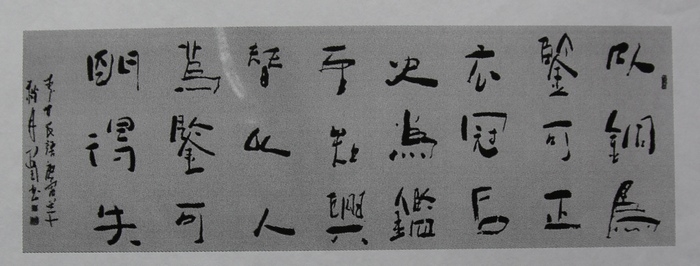 以銅為
鑒可正
衣冠以
史為鑑
可知興
替以人
為鑒可
明得失